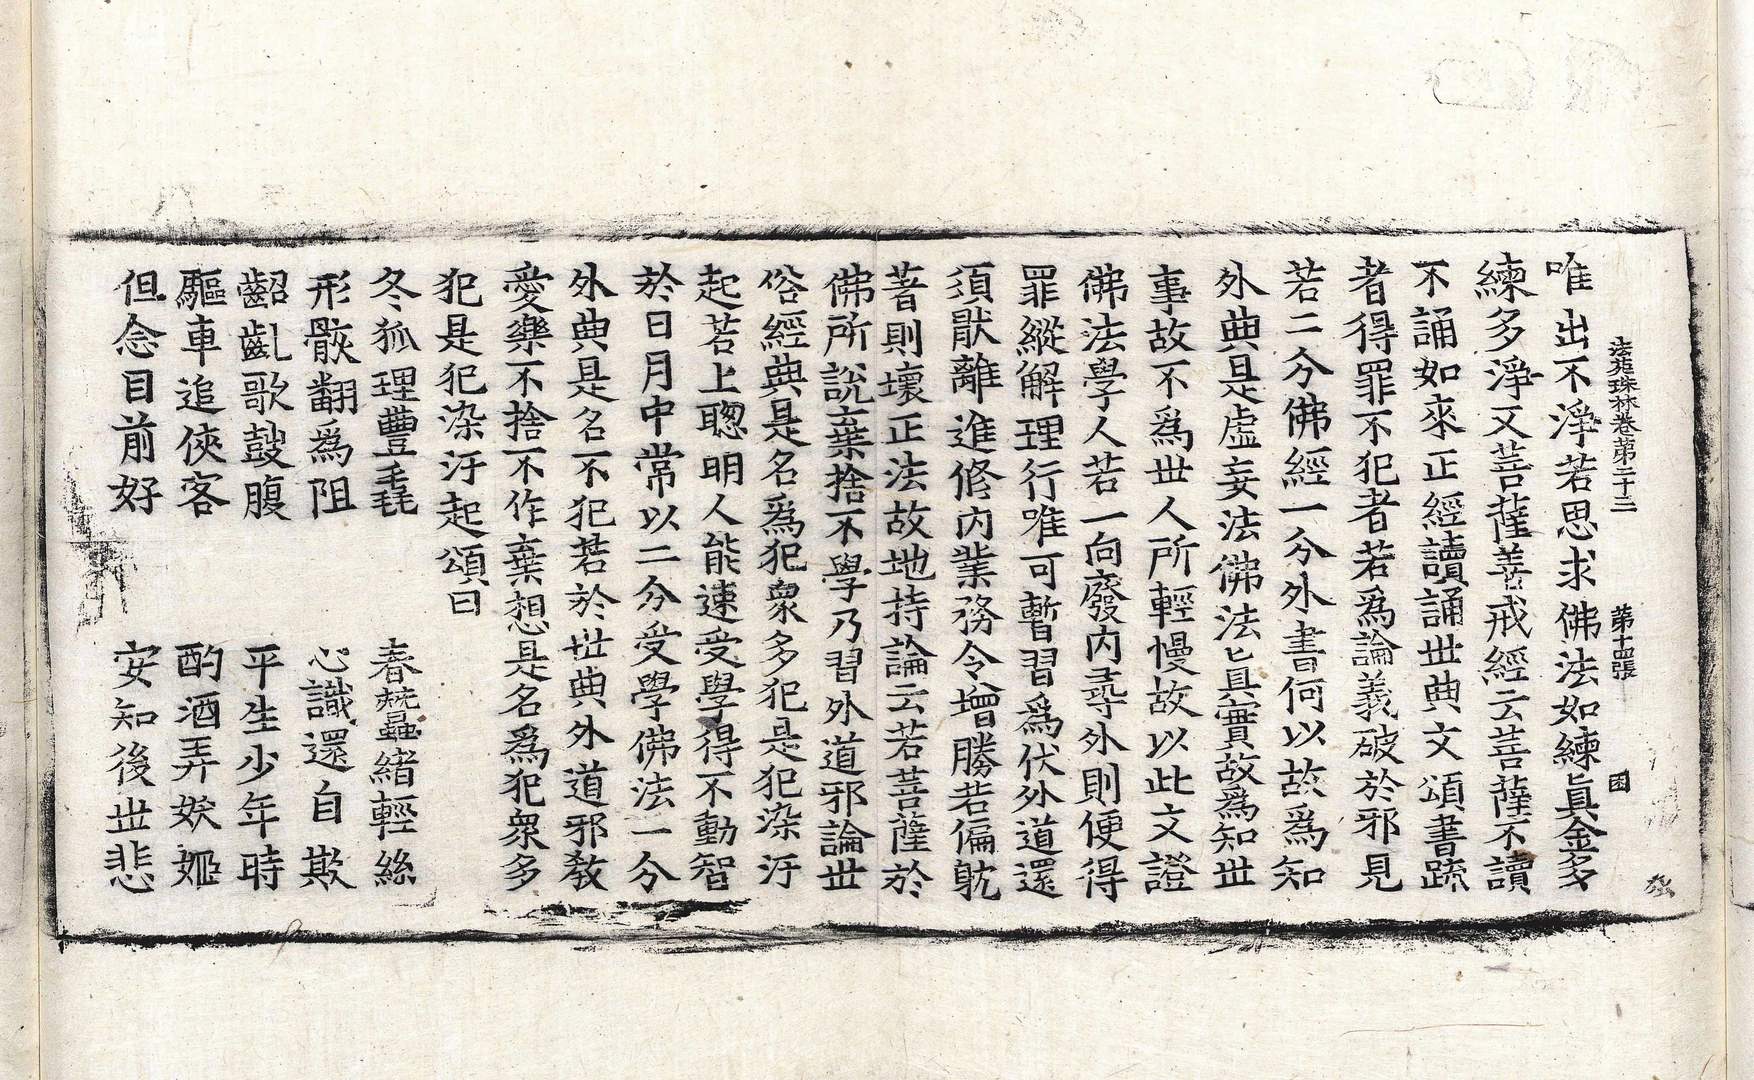 法苑珠林卷第二十三 第十四張 囯
唯出不淨若思求佛法如練眞金多
練多淨又菩薩善戒經云菩薩不讀
不誦如來正經讀誦世典文頌書䟽
者得罪不犯者若爲論義破於邪見
若二分佛經一分外書何以故爲知
外典是虛妄法佛法眞實故爲知世
事故不爲世人所輕慢故以此文證
佛法學人若一向廢内尋外則便得
罪縱解理行唯可暫習爲伏外道還
須猒離進修内業務令增勝若偏躭
著則壞正法故地持論云若菩薩於
佛所說棄捨不學乃習外道邪論世
俗經典是名爲犯衆多犯是犯染汙
起若上聰明人能速受學得不動智
於日月中常以二分受學佛法一分
外典是名不犯若於世典外道邪敎
愛樂不捨不作棄想是名爲犯衆多
犯是犯染汙起頌曰
冬狐理豐毛 春蠶緒輕絲
形骸翻爲阻 心識還自欺
齠齓歌鼓腹 平生少年時
驅車追俠客 酌酒弄妖姬
但念目前好 安知後世悲